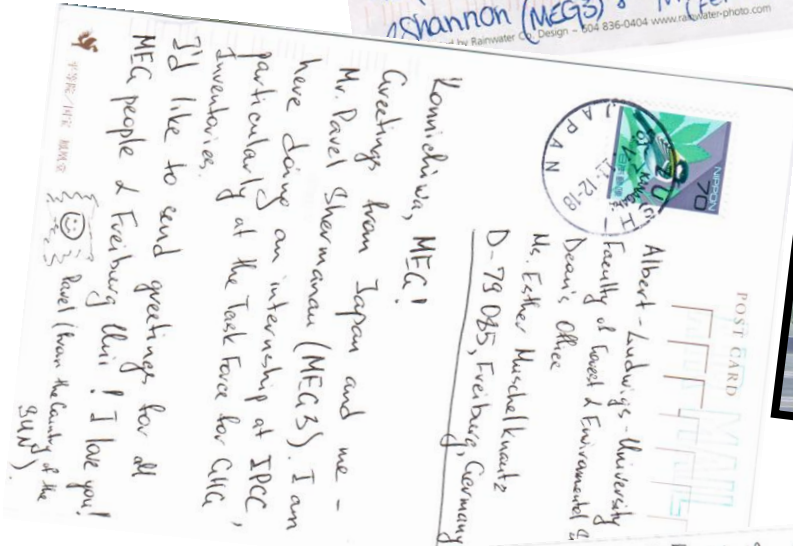 Shannon (MEG3) &
by Rainwater Co. Design – 604 836-0404 www.rainwater-photo.com
POST CARD
AIR MAIL
NIPPON
70
JAPAN
Albert-Ludwigs-University
Faculty of Forest & Environmental
Dean's Office
Ms. Esther Muschelknautz
D-79 085, Freiburg, Germany
Konnichiwa, MEG!
Greetings from Japan and me –
Mr. Pavel Shermanau (MEG3). I am
here doing an internship at IPCC,
particularly at the Task Force for GHG
Inventories.
I'd like to send greetings for all
MEG people & Freiburg Uni! I love you!
Pavel (from the Country of the
SUN).
平等院/国宝 鳳凰堂